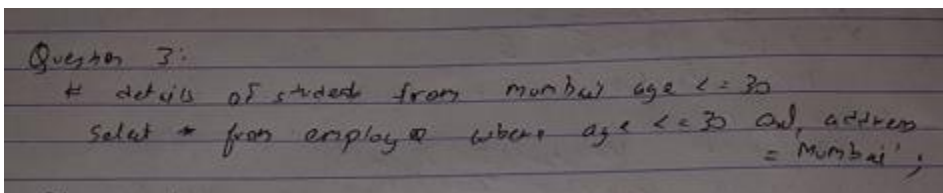 Question 3:
# details of student from mumbai age <= 30
Select * from employe where age <= 30 and, address
= Mumbai';